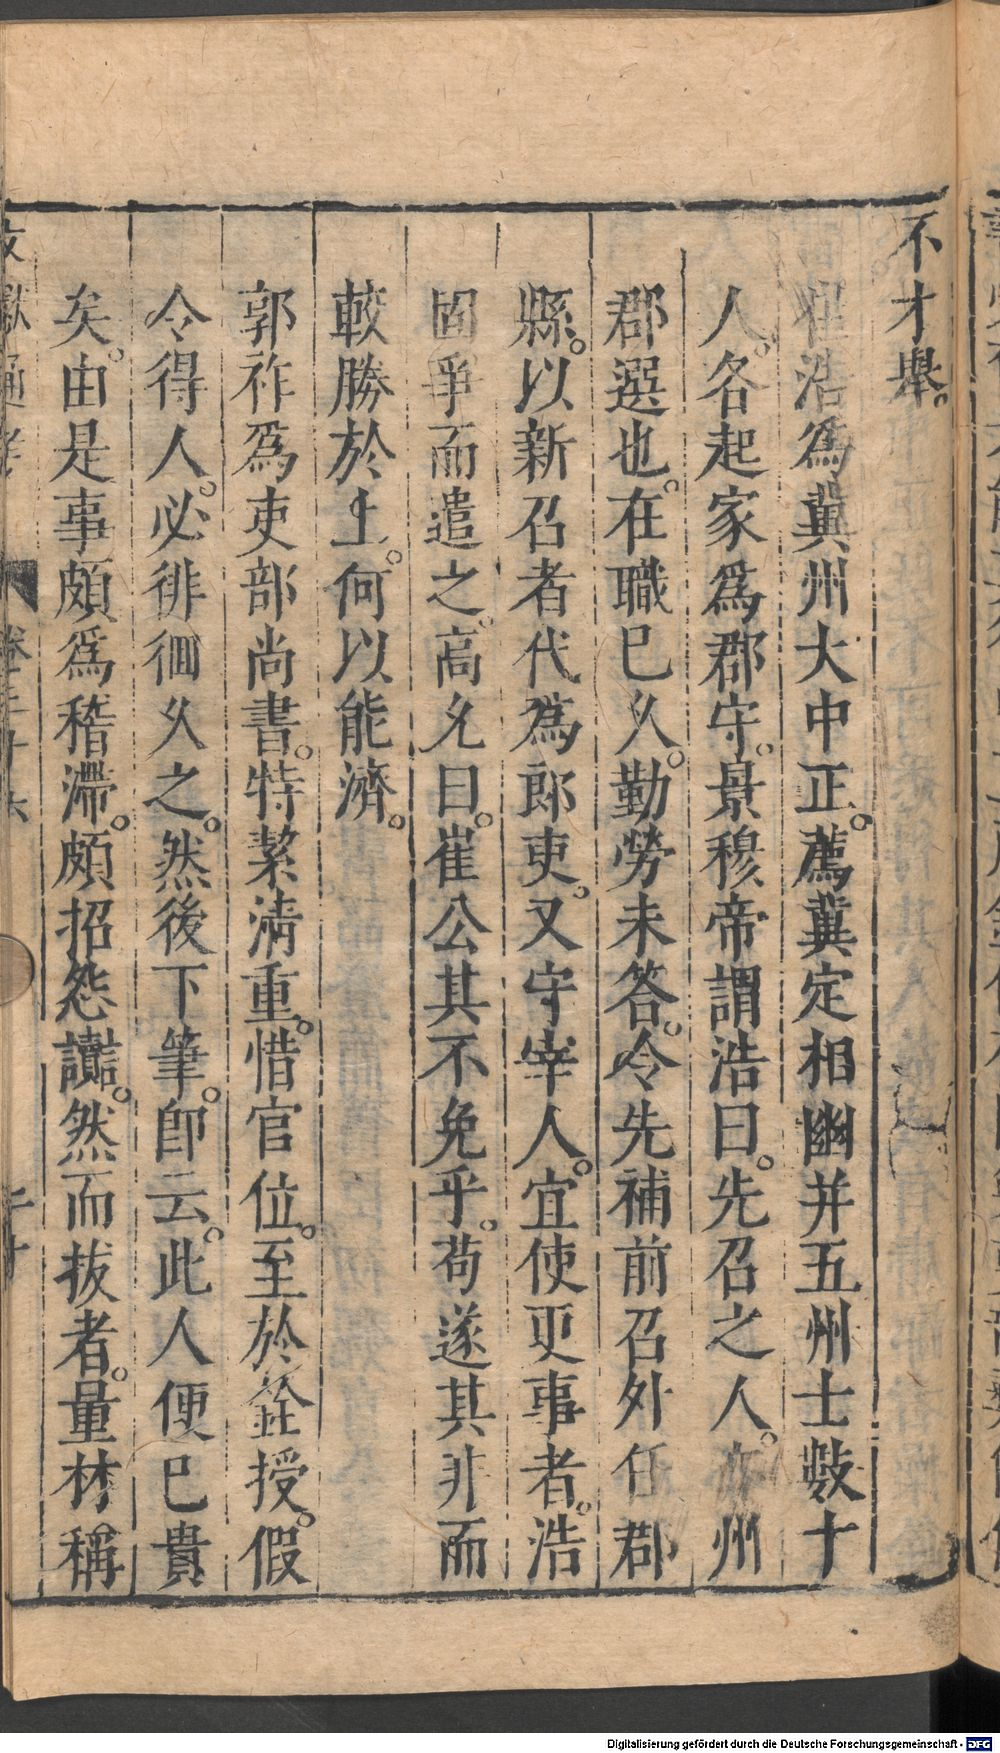 不才舉。
崔浩爲冀州大中正。薦冀定相幽并五州士數十
人。各起家爲郡守。景穆帝謂浩曰。先召之人。亦州
郡選也。在職已久。勤勞未答。令先補前召外任郡
縣。以新召者代爲郎吏。又守宰人。宜使更事者。浩
固爭而遣之。高允曰。崔公其不免乎。苟遂其非而
較勝於上。何以能濟。
郭祚爲吏部尚書。特潔淸重。惜官位。至於銓授。假
令得人。必徘徊久之。然後下筆。卽云。此人便已貴
矣。由是事頗爲稽滯。頗招怨讟。然而拔者。量材稱
文獻通考 卷三十六
Digitalisierung gefördert durch die Deutsche Forschungsgemeinschaft - DFG